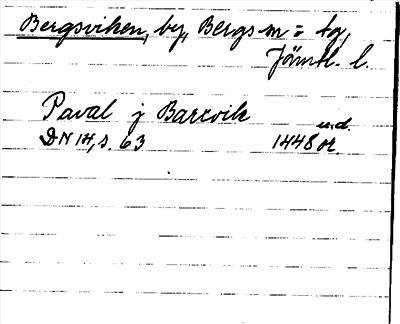 Bergsviken, by, Bergs sn = tg,
Jämtl. l.
Paval j Barrvik
u.d.
DN 14, s. 63 1448 or.